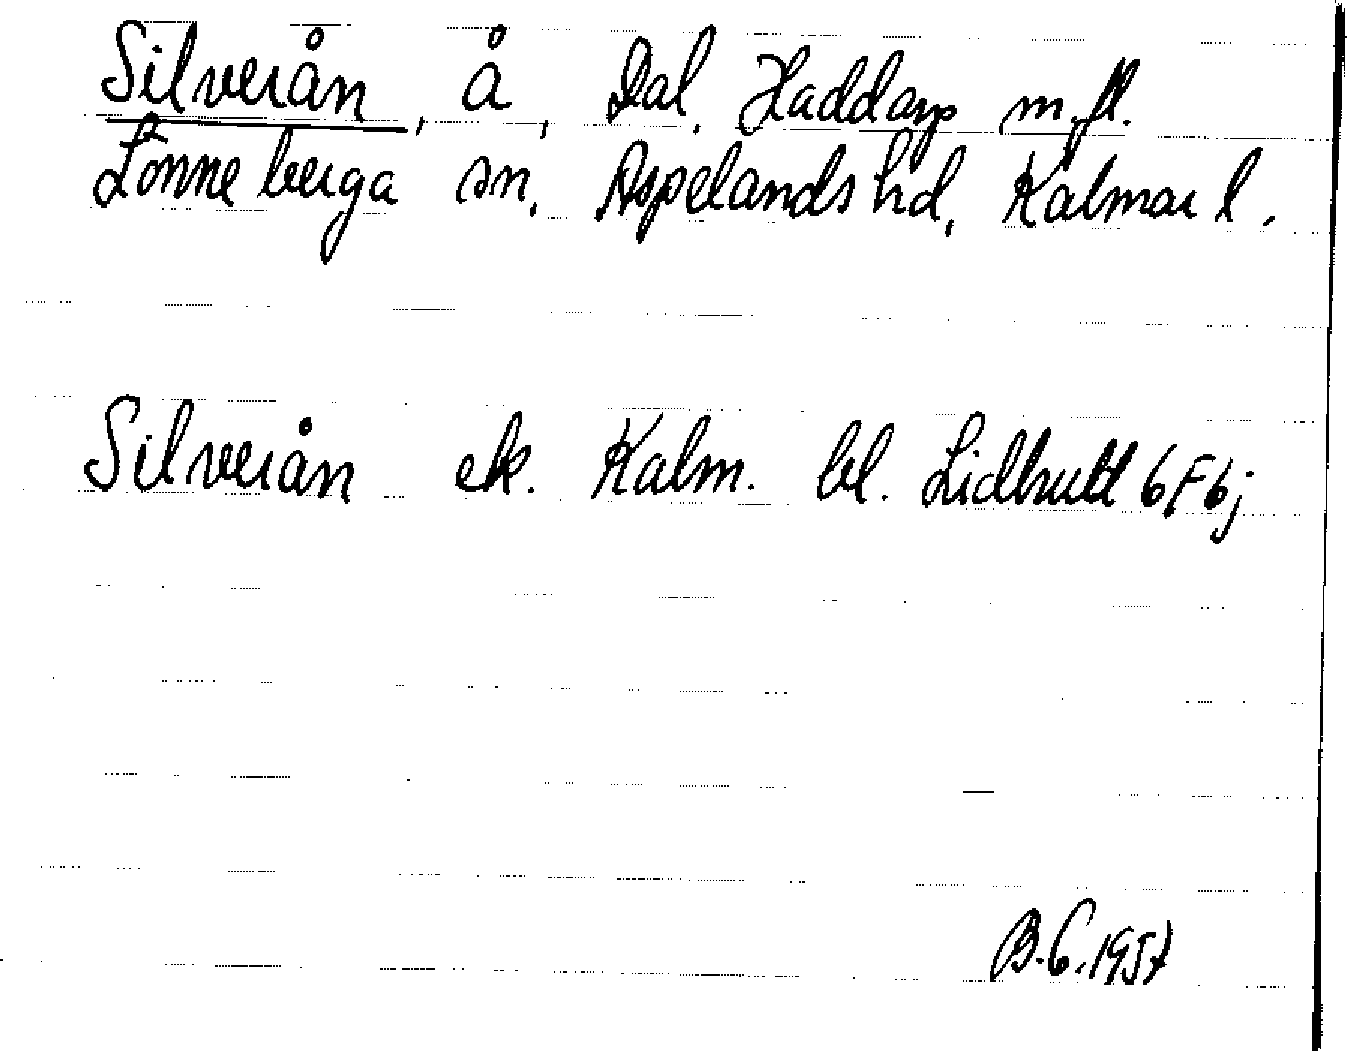 Silverån, å, Dal, Haddarp m.fl.
Lönneberga sn, Aspelands hd, Kalmar l.
Silverån ek. Kalm. bl. Lidhult 6F6j
B.G.1957